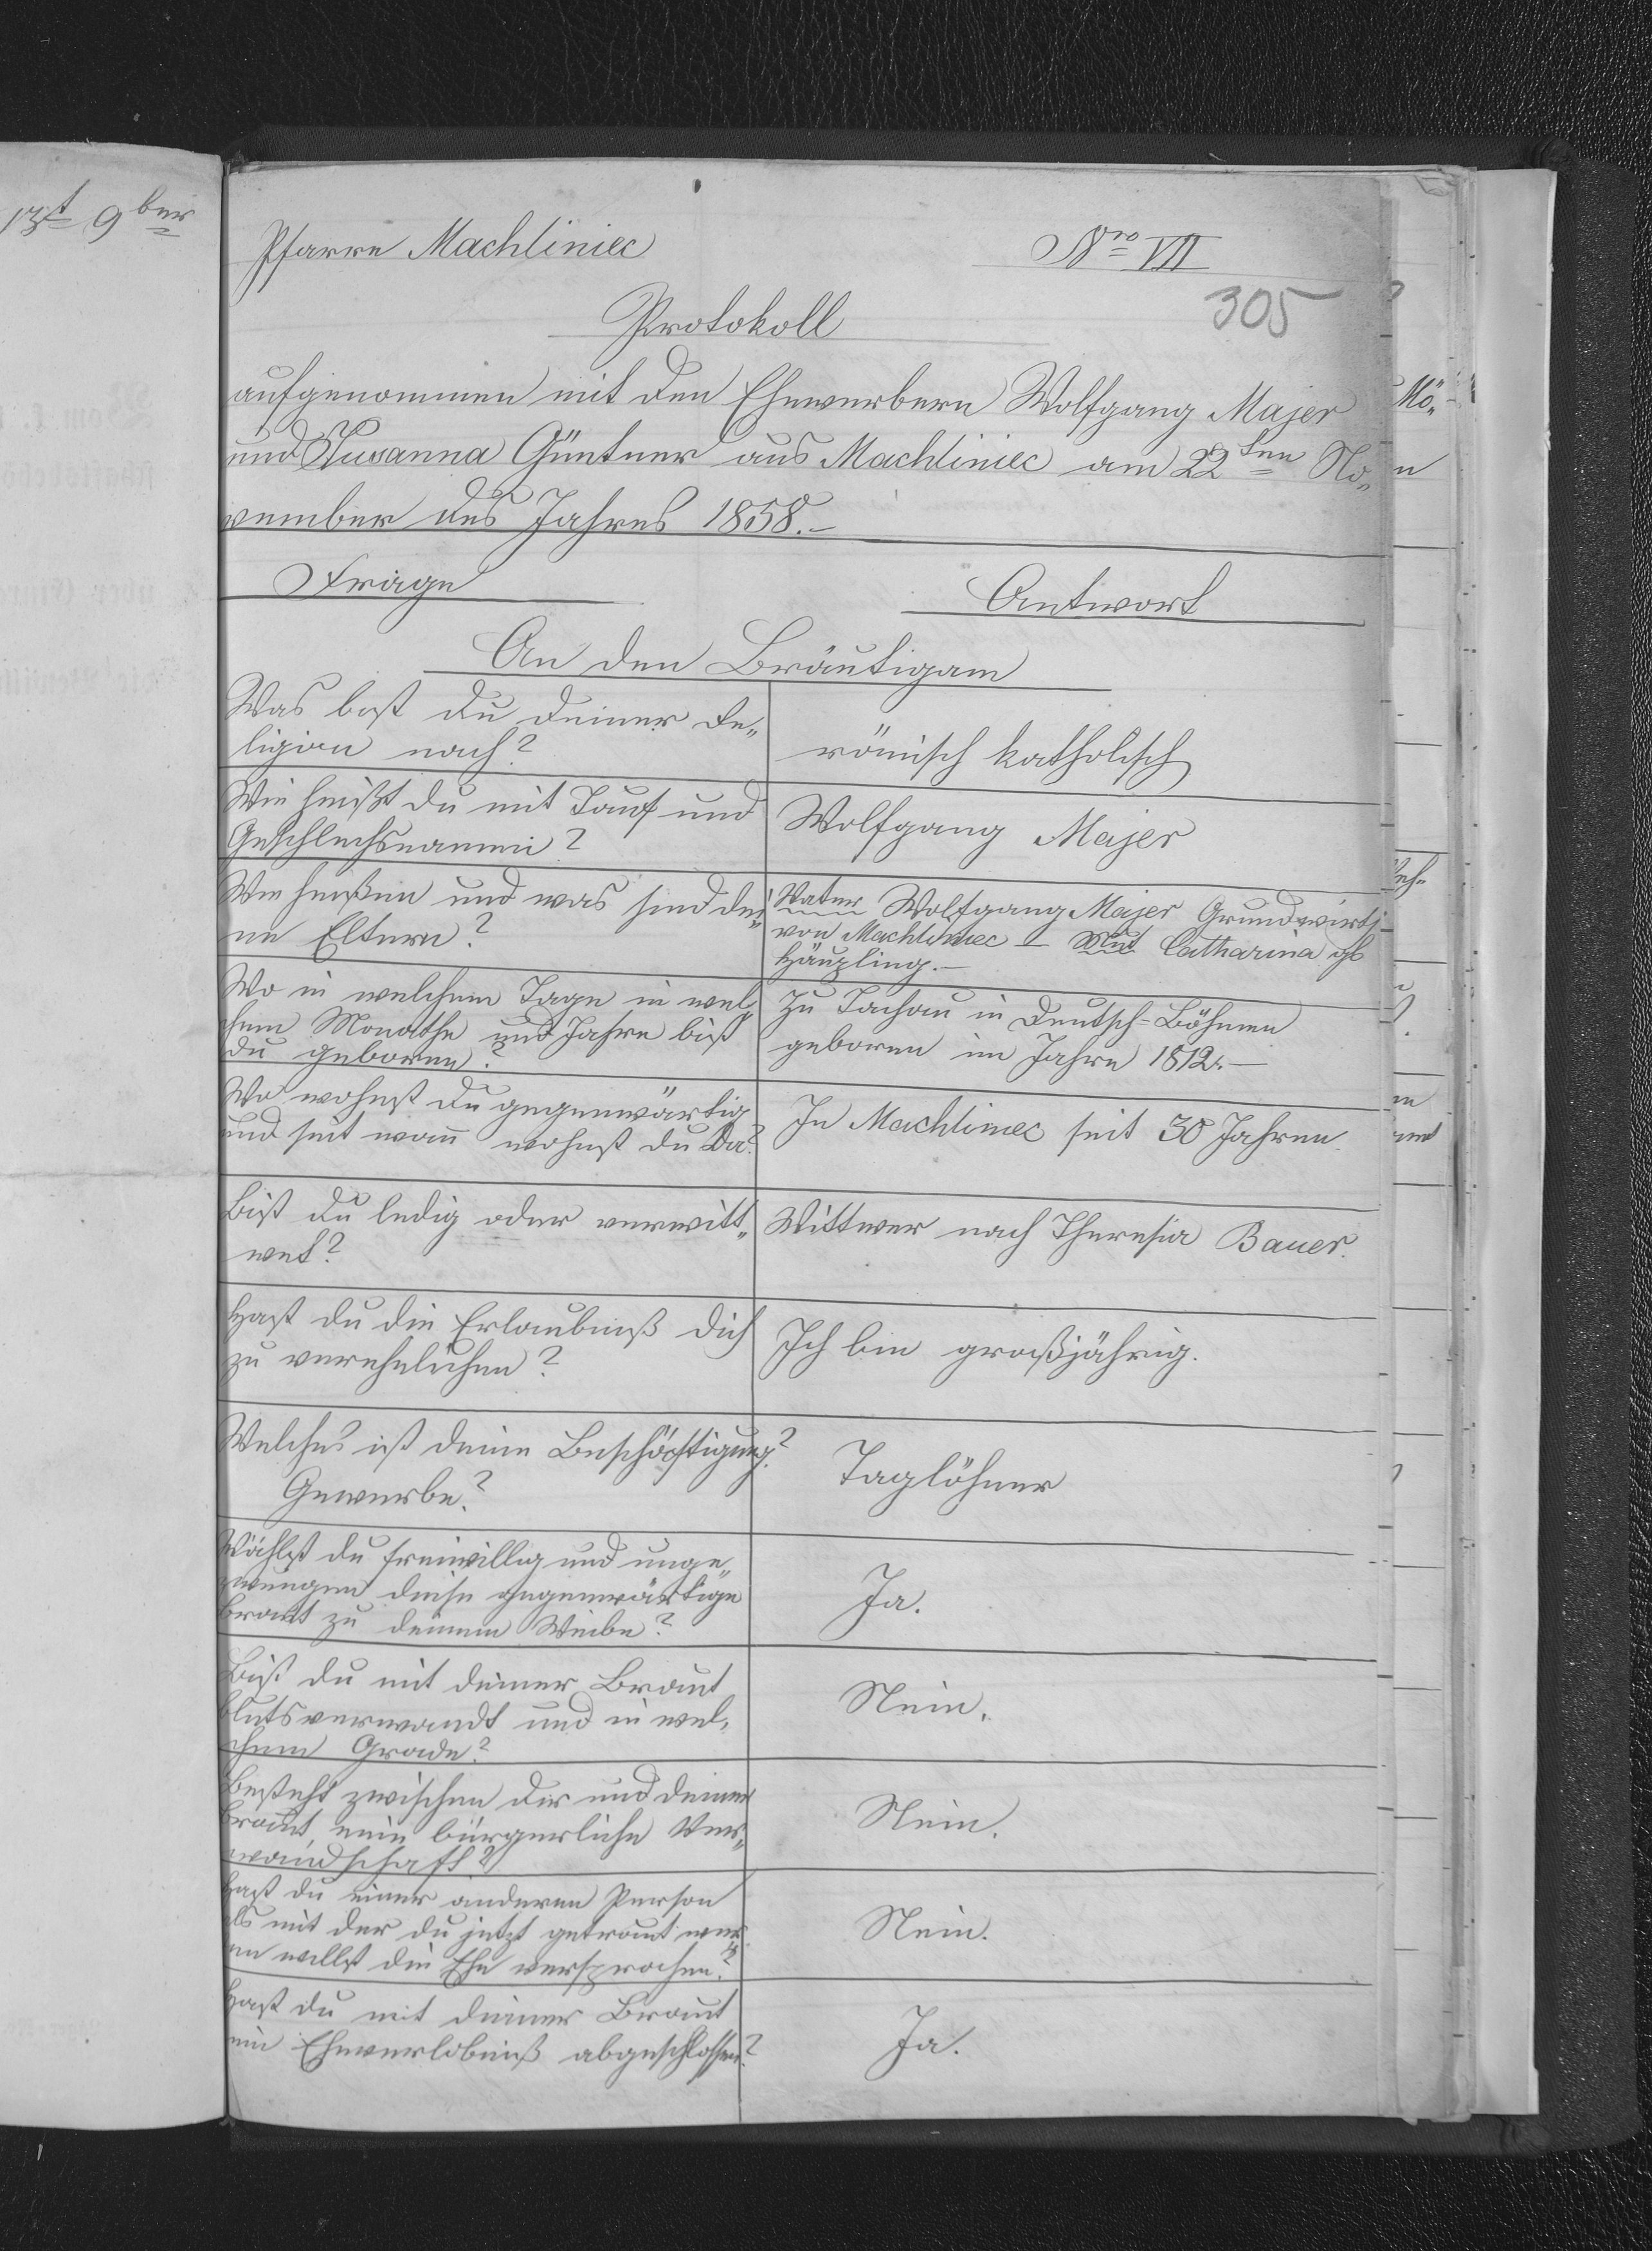 13t 9ber
Pfarre Machliniec
Nro VII
305
Protokoll
aufgenommen mit den Ehewerbern Wolfgang Majer
und Susanna Güntner aus Machliniec am 22ten No„
vember des Jahres 1858.–
Frage
Antwort
An den Bräutigam
Was bist du deiner Re„
ligion nach?
römisch katholisch
Wie heißt du mit Tauf und
Geschlechsnamen?
Wolfgang Majer
Wie heißen und was sind dei„
ne Eltern?
Vater Wolfgang Majer Grundwirth
von Machliniec – Mut Catharina gb
Häupling.–
Wo in welchem Tage in wel„
chem Monathe und Jahre bist
du geboren?
Zu Tachau in Deutsch-Böhmen
geboren im Jahre 1812.–
Wo wohnst du gegenwärtig
und seit wann wohnst du da?
In Machliniec seit 30 Jahren.
Bist du ledig oder verwitt„
wet?
Wittwer nach Theresia Bauer.
Hast du die Erlaubniß dich
zu verehelichen?
Ich bin großjährig.
Welches ist deine Beschäftigung?
Gewerbe?
Taglöhner
Wählst du freiwillig und unge„
zwungen diese gegenwärtige
Braut zu deinem Weibe?
Ja.
Bist du mit deiner Braut
blutsverwandt und in wel„
chem Grade?
Nein.
Besteht zwischen dir und deiner
Braut, eine bürgerliche Ver„
wandschaft?
Nein.
Hast du einer anderen Person
als mit der du jetzt getraut wer„
en willst die Ehe versprochen?
Nein.
Hast du mit deiner Braut
ein Eheverlöbniß abgeschlossen?
Ja.